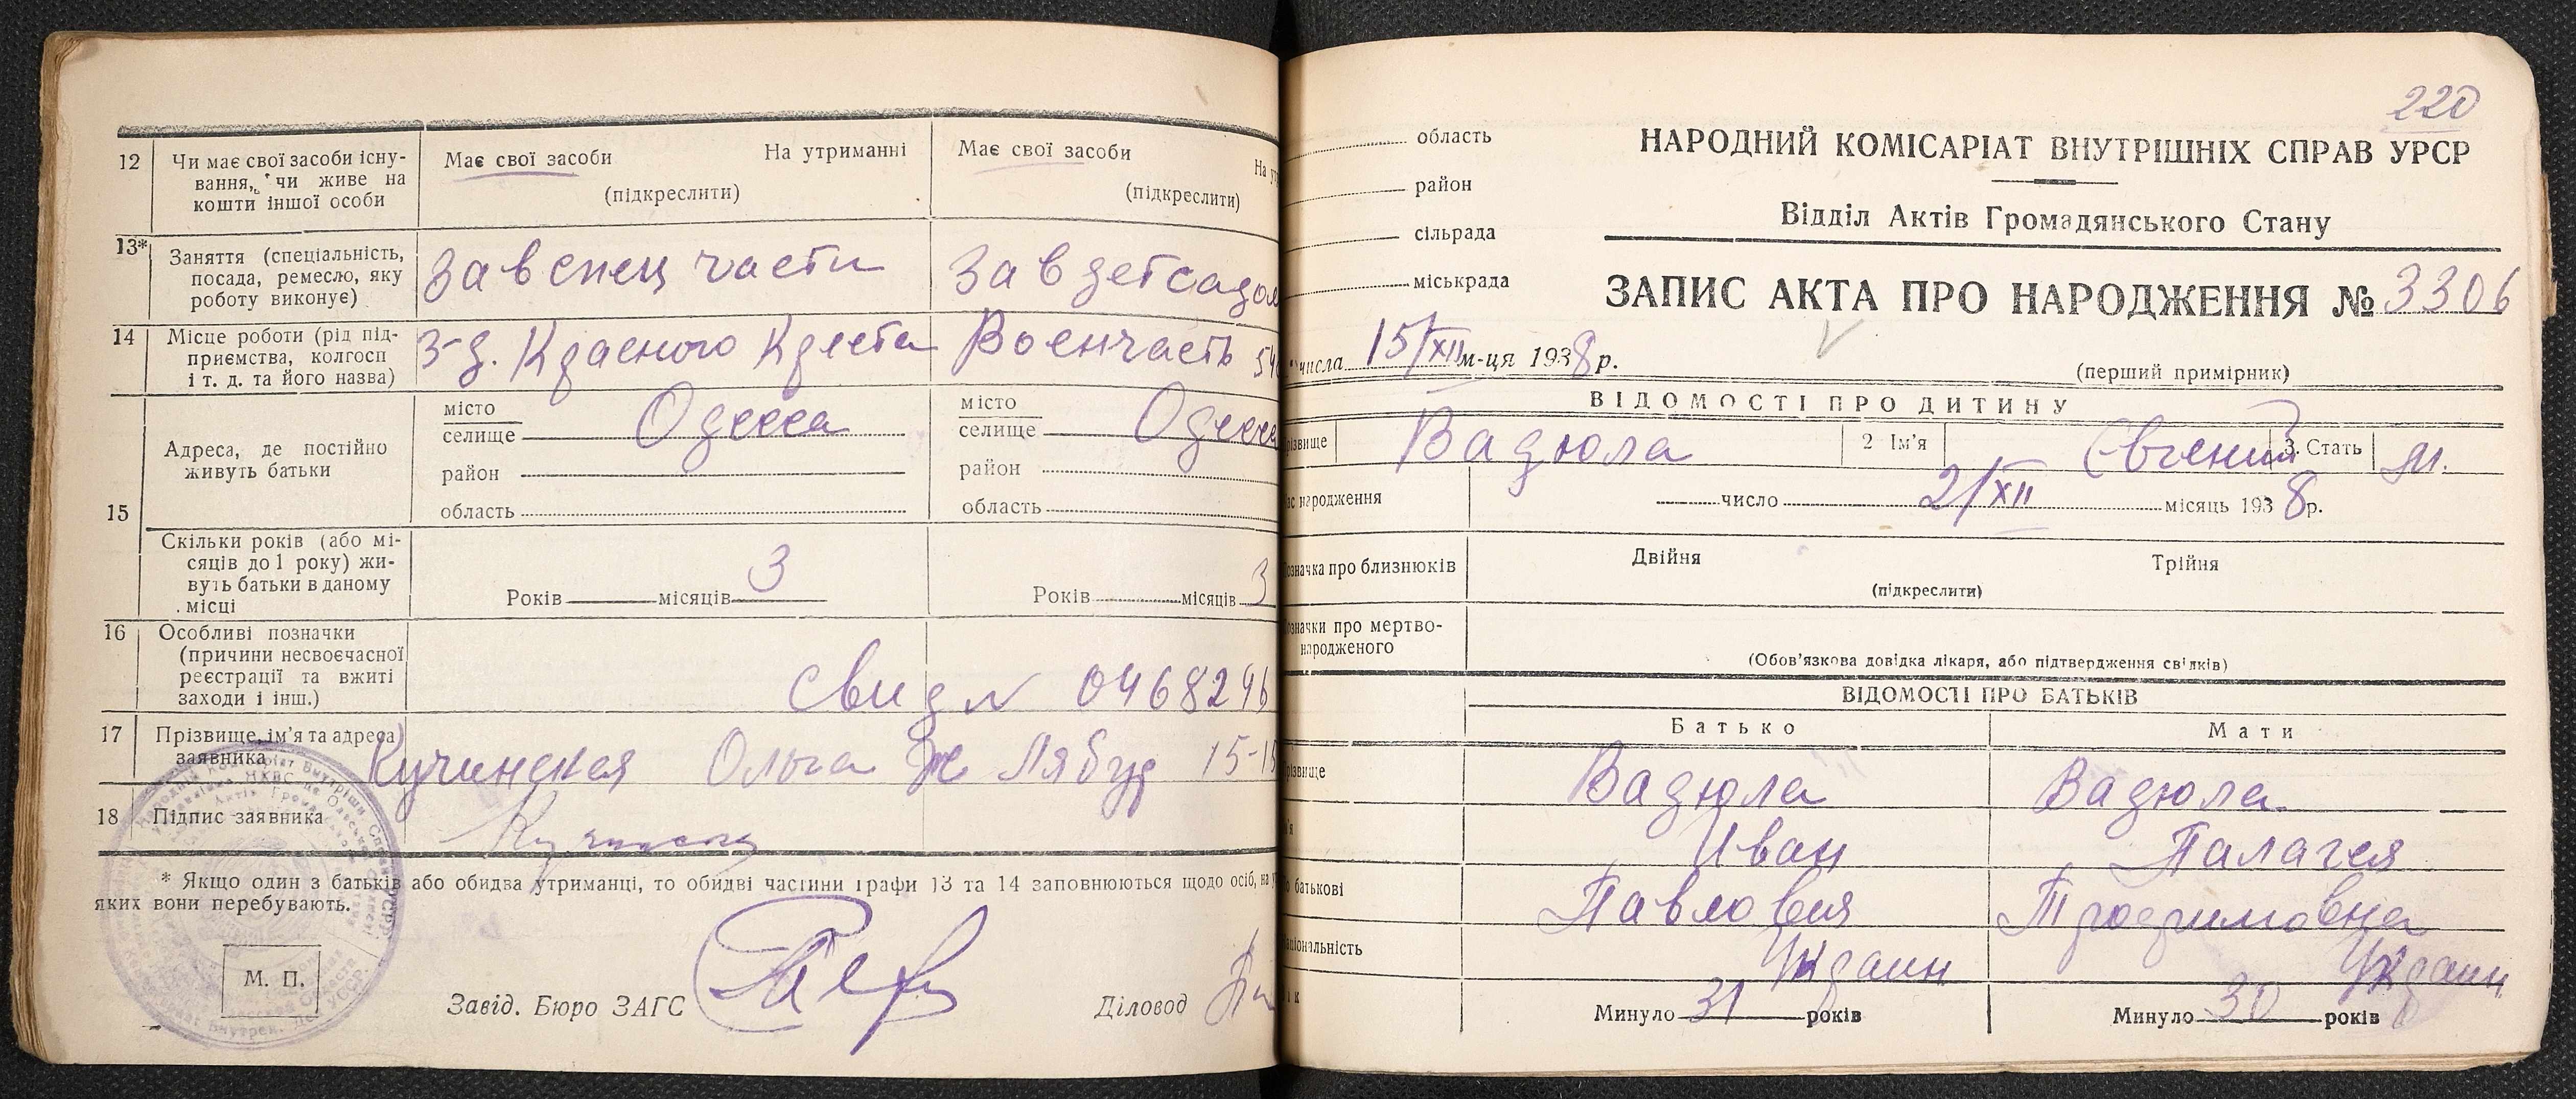 12
Чи має свої засоби існу-
вання, чи живе на
кошти іншої особи
Має свої засоби На утриманні
(підкреслити)
Має свої засоби
(підкреслити)
13*
Заняття (спеціальність,
посада, ремесло, яку
роботу виконує)
Зав спец части
Зав детсадом
14
Місце роботи (рід під-
приємства, колгосп
і т. д. та його назва)
З-д. Красного Креста
Военчасть
15
Адреса, де постійно
живуть батьки
місто
селище Одесса
район
область
місто
селище Одесса
район
область
Скільки років (або мі-
сяців до 1 року) жи-
вуть батьки в даному
місці
Років місяців 3
Років місяців 3
16
Особливі позначки
(причини несвоєчасної
реєстрації та вжиті
заходи і інш.)
Свид № 0468246
17
Прізвище, ім'я та адреса
заявника
Кучинская Ольга
18
Підпис заявника
* Якщо один з батьків або обидва утриманці, то обидві частини графи 13 та 14 заповнюються щодо осіб, на
яких вони перебувають.
М. П.
Завід. Бюро ЗАГС
Діловод
220
область
район
сільрада
міськрада
НАРОДНИЙ КОМІСАРІАТ ВНУТРІШНІХ СПРАВ УРСР
Відділ Актів Громадянського Стану
ЗАПИС АКТА ПРО НАРОДЖЕННЯ № 3306
числа 15/XII м-ця 1938 р.
(перший примірник)
ВІДОМОСТІ ПРО ДИТИНУ
Вадюла
2 Ім'я Євгений
3. Стать м.
народження
число 2/XII місяць 1938 р.
позначка про близнюків
Двійня Трійня
(підкреслити)
позначки про мертво-
народженого
(Обов'язкова довідка лікаря, або підтвердження свідків)
ВІДОМОСТІ ПРО БАТЬКІВ
Батько Мати
Вадюла Вадюла
Иван Палагея
батькові Павлович Трофимовна
національність Украин Украин
Минуло 31 років Минуло 30 років